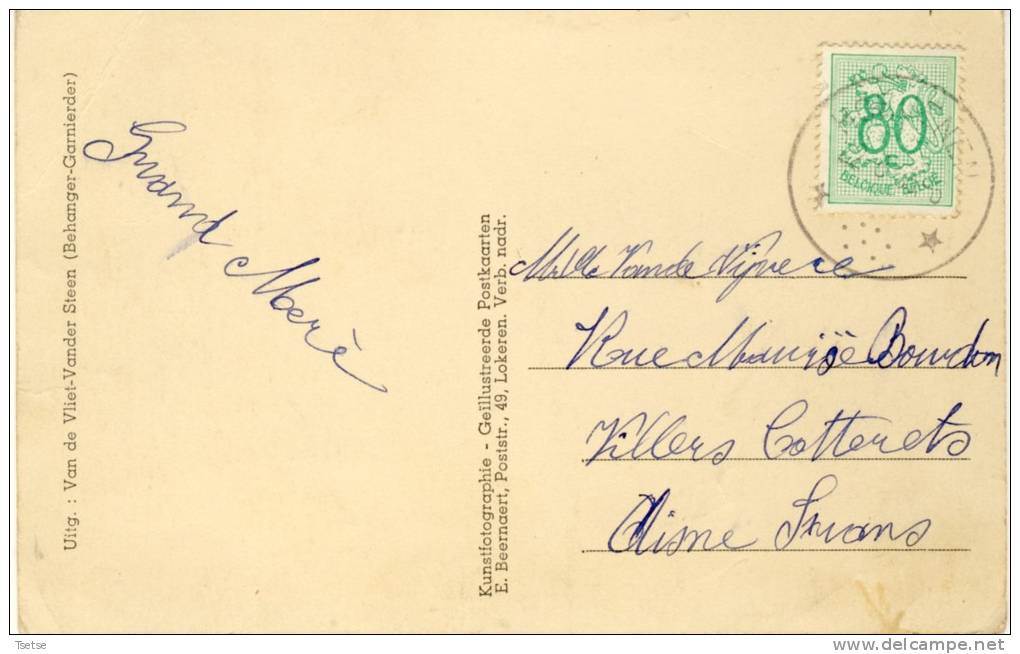 Uitg. : Van de Vliet-Vander Steen (Behanger-Garnierder)
Grand Merè
Kunstfotographie - Geïllustreerde Postkaarten
E. Beernaert, Poststr., 49, Lokeren. Verb. nadr.
80
BELGIQUE BELGIE
Vande Vijvere
Rue Maurise Bourdon
Villers Cotterets
Aisne
Tsetse
www.delcampe.net